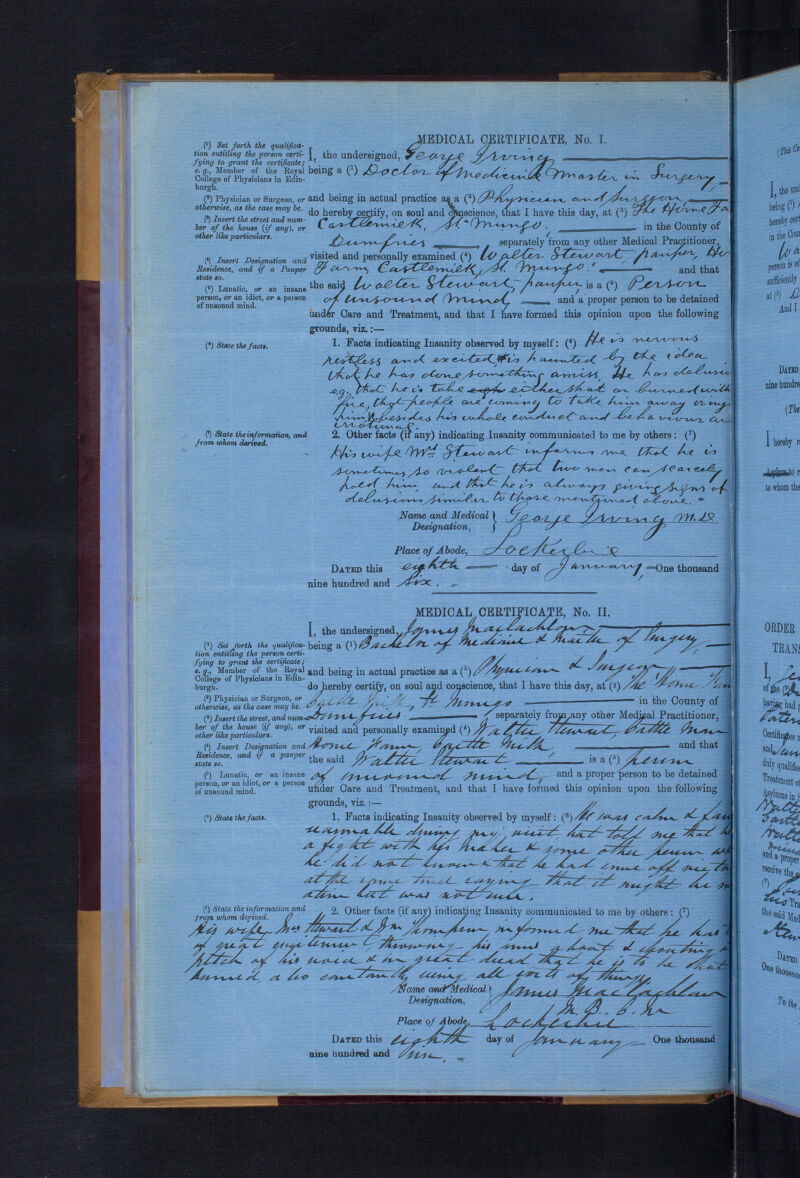 MEDICAL CERTIFICATE, No. I.
(¹) Set forth the qualifica-
tion entitling the person certi-
fying to grant the certificate;
e.g., Member of the Royal
College of Physicians in Edin-
burgh.
(²) Physician or Surgeon, or
otherwise, as the case may be.
(³) Insert the street and num-
ber of the house (if any), or
other like particulars.
(⁴) Insert Designation and
Residence, and if a Pauper
state so.
(⁵) Lunatic, or an insane
person, or an idiot, or a person
of unsound mind.
(⁶) State the facts.
(⁷) State the information, and
from whom derived.
I, the undersigned, George Irving
being a (¹) Doctor of Medicine & Master in Surgery
and being in actual practice as a (²) Physician and Surgeon
do hereby certify, on soul and conscience, that I have this day, at (³) The Home Fa
Castlemilk, St. Mungo, in the County of
Dumfries, separately from any other Medical Practitioner,
visited and personally examined (⁴) Walter Stewart, pauper, Ho
Farm Castlemilk, St. Mungo and that
the said Walter Stewart, pauper, is a (⁵) Person
of unsound mind, and a proper person to be detained
under Care and Treatment, and that I have formed this opinion upon the following
grounds, viz. :—
1. Facts indicating Insanity observed by myself: (⁶) He is nervous
restless and excited & is haunted by the idea
that he has done something amiss. He has delusio
eg. that he is to be either shot or burned with
fire, that people are coming to take him away or inj
him & besides his whole conduct and behaviour ar
irrational.
2. Other facts (if any) indicating Insanity communicated to me by others: (⁷)
His wife Mrs. Stewart informs me that he is
sometimes so violent that two men can scarcely
hold him, and that he is always giving signs of
delusions similar to those mentioned above.
Name and Medical Designation, George Irving M.D
Place of Abode, Lockerbie
DATED this eighth day of January, One thousand
nine hundred and Six.
MEDICAL CERTIFICATE, No. II.
(¹) Set forth the qualifica-
tion entitling the person certi-
fying to grant the certificate;
e.g., Member of the Royal
College of Physicians in Edin-
burgh.
(²) Physician or Surgeon, or
otherwise, as the case may be.
(³) Insert the street, and num-
ber of the house (if any), or
other like particulars.
(⁴) Insert Designation and
Residence, and if a pauper
state so.
(⁵) Lunatic, or an insane
person, or an idiot, or a person
of unsound mind.
(⁶) State the facts.
(⁷) State the information and
from whom derived.
I, the undersigned, James Maclachlan
being a (¹) Bachelor of Medicine & Master of Surgery,
and being in actual practice as a (²) Physician & Surgeon
do hereby certify, on soul and conscience, that I have this day, at (³) The Home
St Mungo in the County of
Dumfries, separately from any other Medical Practitioner,
visited and personally examined (⁴) Walter Stewart, Cattle Man
Home Farm, and that
the said Walter Stewart is a (⁵) person
of unsound mind, and a proper person to be detained
under Care and Treatment, and that I have formed this opinion upon the following
grounds, viz. :—
1. Facts indicating Insanity observed by myself: (⁶) He was calm & fair
reasonable during my visit but told me that h
a fight with his maker & some other person wh
he did not know & that he had come off victo
at the same time saying that it might be
but was not sure.
2. Other facts (if any) indicating Insanity communicated to me by others: (⁷)
His wife Mrs Stewart & Jm Thompson informed me that he has
of great excitement throwing his arms about & shouting
pitch of his voice & in great dread that he is to be shot
burned, also constantly seeing all sorts of things
Name and Medical Designation, James Maclachlan
M.B. C.M
Place of Abode, Lockerbie
DATED this eighth day of January One thousand
nine hundred and six.
ORDER
TRANS